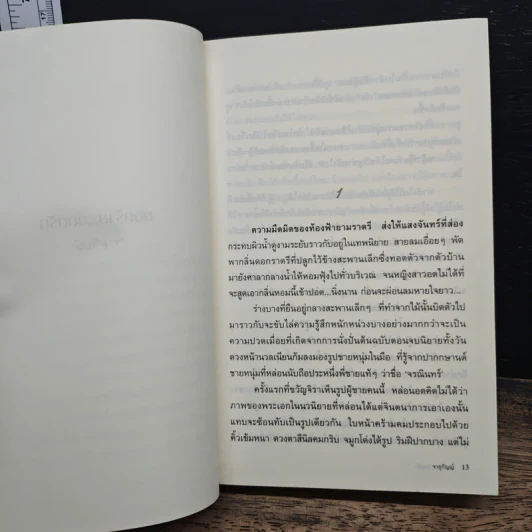 1
ความมืดมิดของท้องฟ้ายามราตรี ส่งให้แสงจันทร์ที่ส่อง
กระทบผิวน้ำดูงามระยับราวกับอยู่ในเทพนิยาย สายลมเอื่อยๆ พัด
พากลิ่นดอกราตรีที่ปลูกไว้ข้างสะพานเล็กซึ่งทอดตัวจากตัวบ้าน
มายังศาลากลางน้ำให้หอมฟุ้งไปทั่วบริเวณ จนหญิงสาวอดไม่ได้ที่
จะสูดเอากลิ่นหอมนี้เข้าปอด...นิ่งนาน ก่อนจะผ่อนลมหายใจยาว...
ร่างบางที่ยืนอยู่กลางสะพานเล็กๆ ที่ทำจากไม้นั้นบิดตัวไป
มาราวกับจะขับไล่ความรู้สึกหนักหน่วงบางอย่างมากกว่าจะเป็น
ความปวดเมื่อยที่เกิดจากการนั่งปั่นต้นฉบับตอนจบนิยายทั้งวัน
ดวงหน้านวลเนียนก้มลงมองรูปชายหนุ่มในมือ ที่รู้จากปากกษานต์
ชายหนุ่มที่หล่อนนับถือประหนึ่งพี่ชายแท้ๆ ว่าชื่อ 'จรณินทร์'
ครั้งแรกที่ขวัญจิราเห็นรูปผู้ชายคนนี้ หล่อนอดคิดไม่ได้ว่า
ภาพของพระเอกในนวนิยายที่หล่อนได้แต่จินตนาการเอาเองนั้น
แทบจะซ้อนทับเป็นรูปเดียวกัน ใบหน้าคร้ามคมประกอบไปด้วย
คิ้วเข้มหนา ดวงตาสีนิลคมกริบ จมูกโด่งได้รูป ริมฝีปากบาง แต่ไม่
จารุกัญญ์ 13